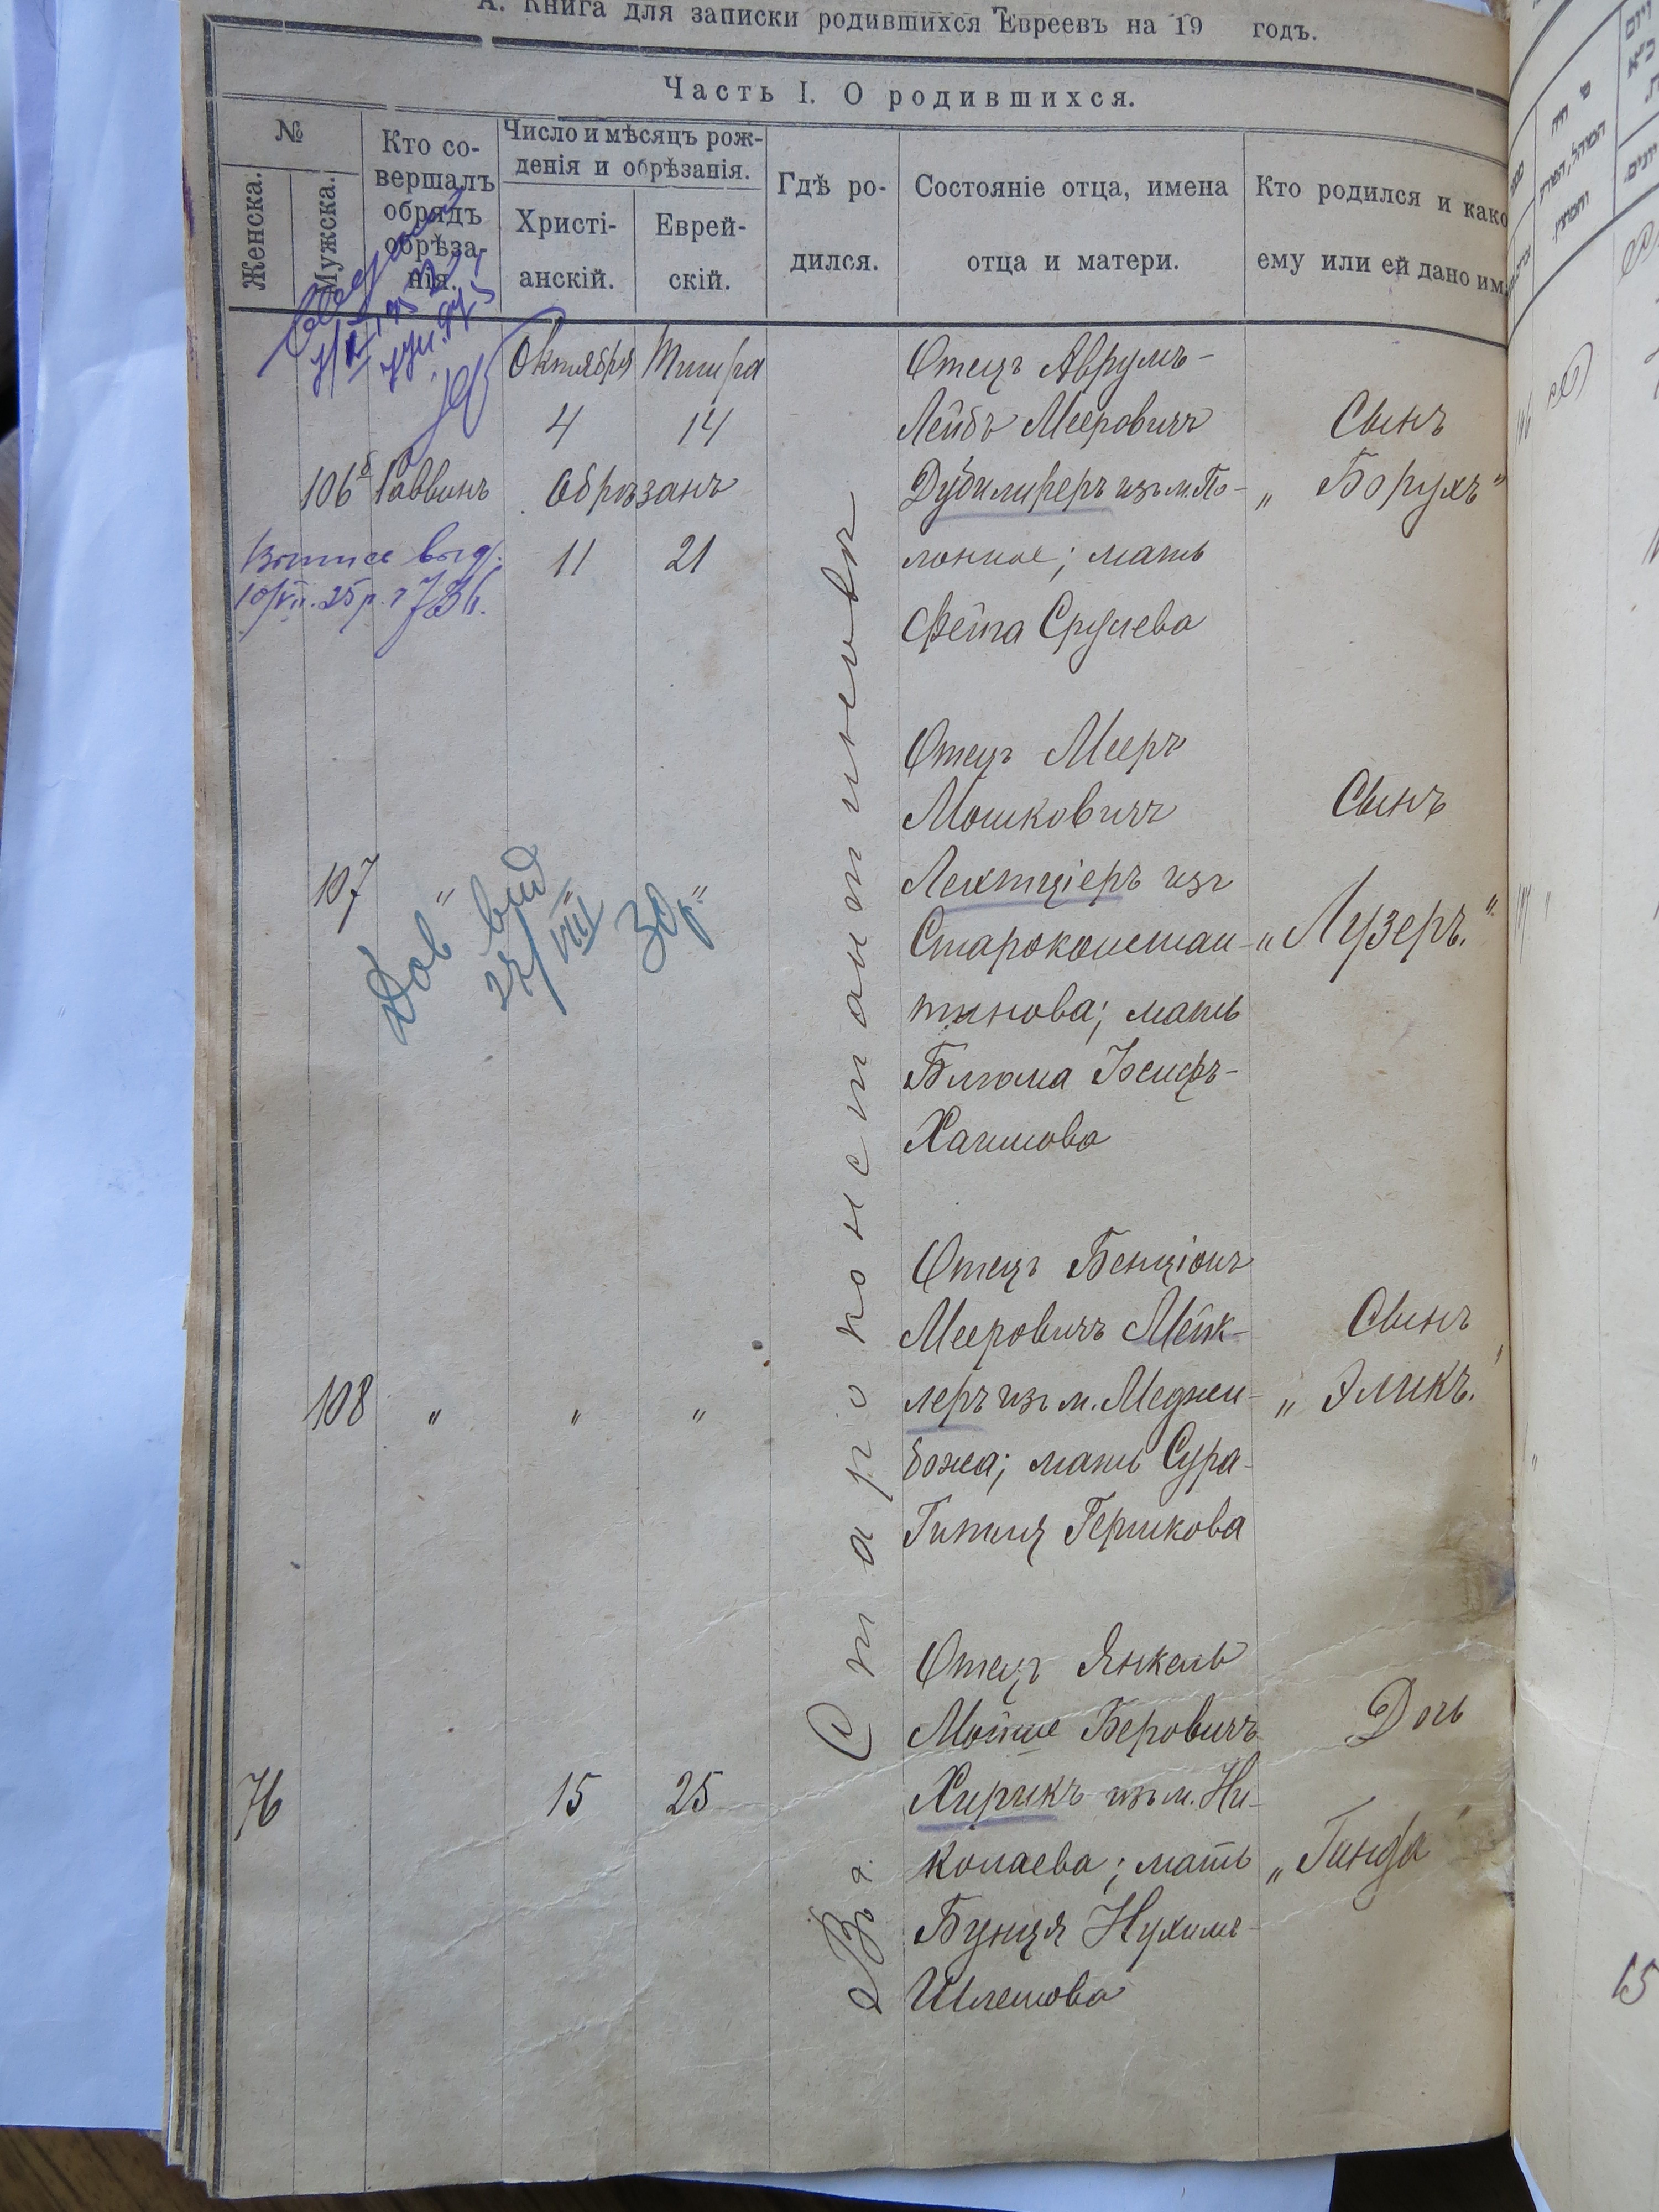 А. Книга для записки родившихся Евреевъ на 19 годъ.
Часть I. О родившихся.
№
Женска.
Мужска.
Кто со-
вершалъ
обрядъ
обрѣза-
нія.
Число и мѣсяцъ рож-
денія и обрѣзанія.
Христі-
анскій.
Еврей-
скій.
Гдѣ ро-
дился.
Состояніе отца, имена
отца и матери.
Кто родился и како
ему или ей дано им
106б
Раввинъ
Октября
4
Тишра
14
Обрѣзанъ
11
21
выд.
10/VII. 25 р.
Отецъ Аврумъ-
Лейбъ Мееровичъ
Дубилиреръ изъ м. По-
лонное; мать
Фейга Срулева
Сынъ
„Борухъ“
107
"
"
"
Дов вид
22/VIII 30 р
Отецъ Мееръ
Мошковичъ
изъ
Староконстан-
тинова; мать
Блюма Іосифъ-
Хаимова
Сынъ
„Лузеръ."
108
"
"
"
Отецъ Бенціонъ
Мееровичъ Мейк-
леръ изъ м. Меджи-
божа; мать Сура-
Гитля Гершкова
Сынъ
„Эликъ."
76
15
25
Отецъ Янкель
Мойше Беровичъ
Хирикъ изъ м. Ни-
колаева; мать
Бунця Нухимъ-
Шлемова
Дочь
„Гинда
Въ г. Староконстантиновѣ
15